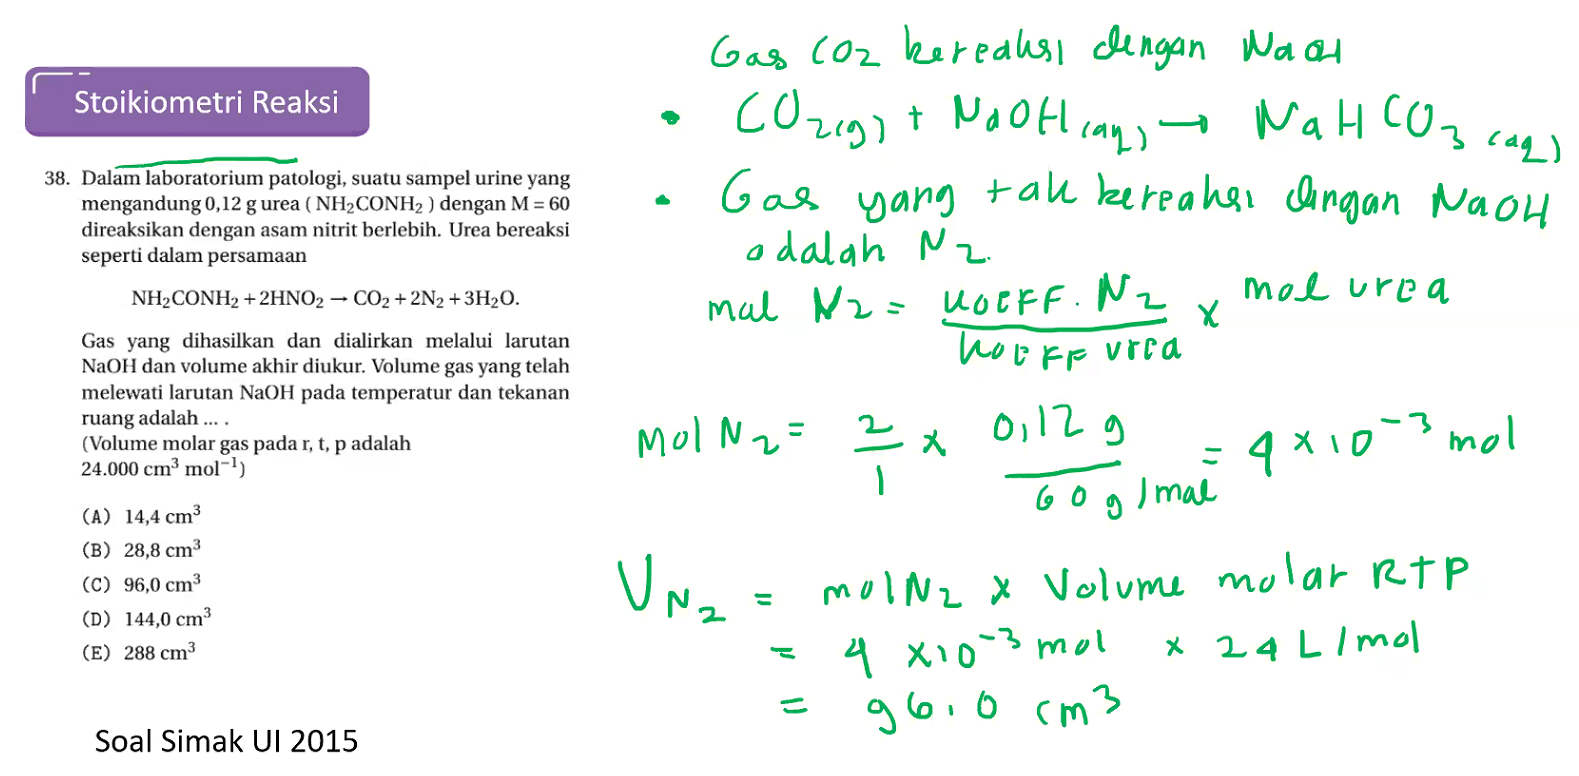 Stoikiometri Reaksi
38. Dalam laboratorium patologi, suatu sampel urine yang
mengandung 0,12 g urea ( NH₂CONH₂ ) dengan M = 60
direaksikan dengan asam nitrit berlebih. Urea bereaksi
seperti dalam persamaan
NH₂CONH₂ + 2HNO₂ → CO₂ + 2N₂ + 3H₂O.
Gas yang dihasilkan dan dialirkan melalui larutan
NaOH dan volume akhir diukur. Volume gas yang telah
melewati larutan NaOH pada temperatur dan tekanan
ruang adalah ... .
(Volume molar gas pada r, t, p adalah
24.000 cm³ mol⁻¹)
(A) 14,4 cm³
(B) 28,8 cm³
(C) 96,0 cm³
(D) 144,0 cm³
(E) 288 cm³
Soal Simak UI 2015
Gas CO2 bereaksi dengan NaOH
• CO₂(g) + NaOH (aq) → NaHCO₃ (aq)
• Gas yang tak bereaksi dengan NaOH
adalah N₂.
mol N₂ = KOEFF. N₂ / KOEFF urea × mol urea
Mol N₂ = 2/1 × 0,12 g / 60 g/mol = 4 × 10⁻³ mol
V N₂ = mol N₂ × Volume molar RTP
= 4 × 10⁻³ mol × 24 L/mol
= 96,0 cm³